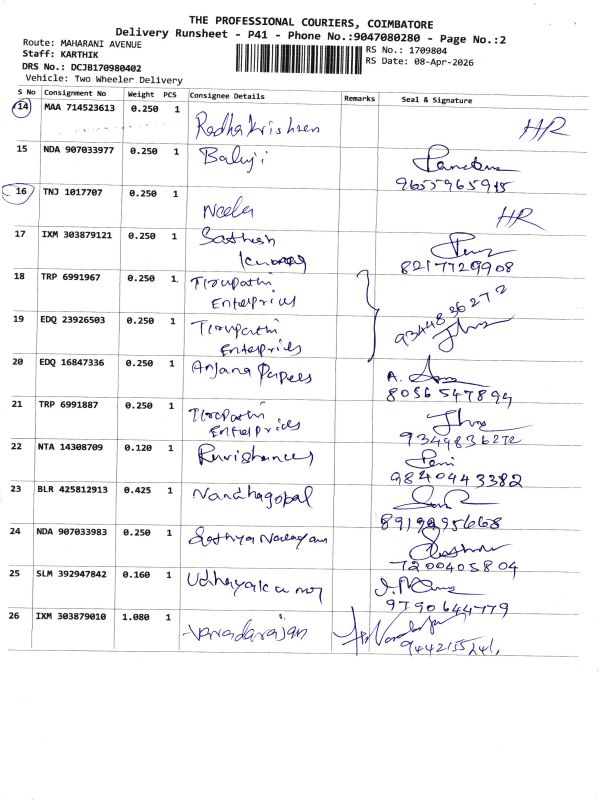 THE PROFESSIONAL COURIERS, COIMBATORE
Delivery Runsheet - P41 - Phone No.:9047080280 - Page No.:2
Route: MAHARANI AVENUE
RS No.: 1709804
Staff: KARTHIK
RS Date: 08-Apr-2026
DRS No.: DCJB170980402
Vehicle: Two Wheeler Delivery
S No Consignment No Weight PCS Consignee Details Remarks Seal & Signature
14 MAA 714523613 0.250 1 Radhakrishnan HR
15 NDA 907033977 0.250 1 Balaji
9655965915
16 TNJ 1017707 0.250 1 Neela HR
17 IXM 303879121 0.250 1 Sathish
8217729908
18 TRP 6991967 0.250 1 Tirupathi
Enterprises
19 EDQ 23926503 0.250 1 Tirupathi
Enterprises
9344836272
20 EDQ 16847336 0.250 1 Anjana Papers A.
21 TRP 6991887 0.250 1 Tirupathi
Enterprises
22 NTA 14308709 0.120 1
9840443382
23 BLR 425812913 0.425 1 Nandhagopal
24 NDA 907033983 0.250 1 Sathya Narayan
7200405804
25 SLM 392947842 0.160 1 Udhayakumar
9790644779
26 IXM 303879010 1.080 1 Varadarajan